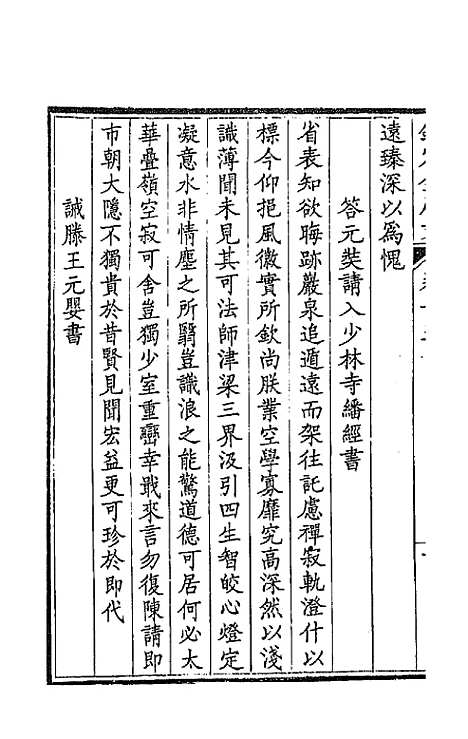 遠臻深以爲愧
答元奘請入少林寺繙經書
省表知欲晦跡巖泉追遁遠而架往託慮禪寂軌澄什以
標今仰挹風徽實所欽尚朕業空學寡靡究高深然以淺
識薄聞未見其可法師津梁三界汲引四生智皎心燈定
凝意水非情塵之所翳豈識浪之能驚道德可居何必太
華疊嶺空寂可舍豈獨少室重巒幸戢來言勿復陳請即
市朝大隱不獨貴於昔賢見聞宏益更可珍於即代
誡滕王元嬰書